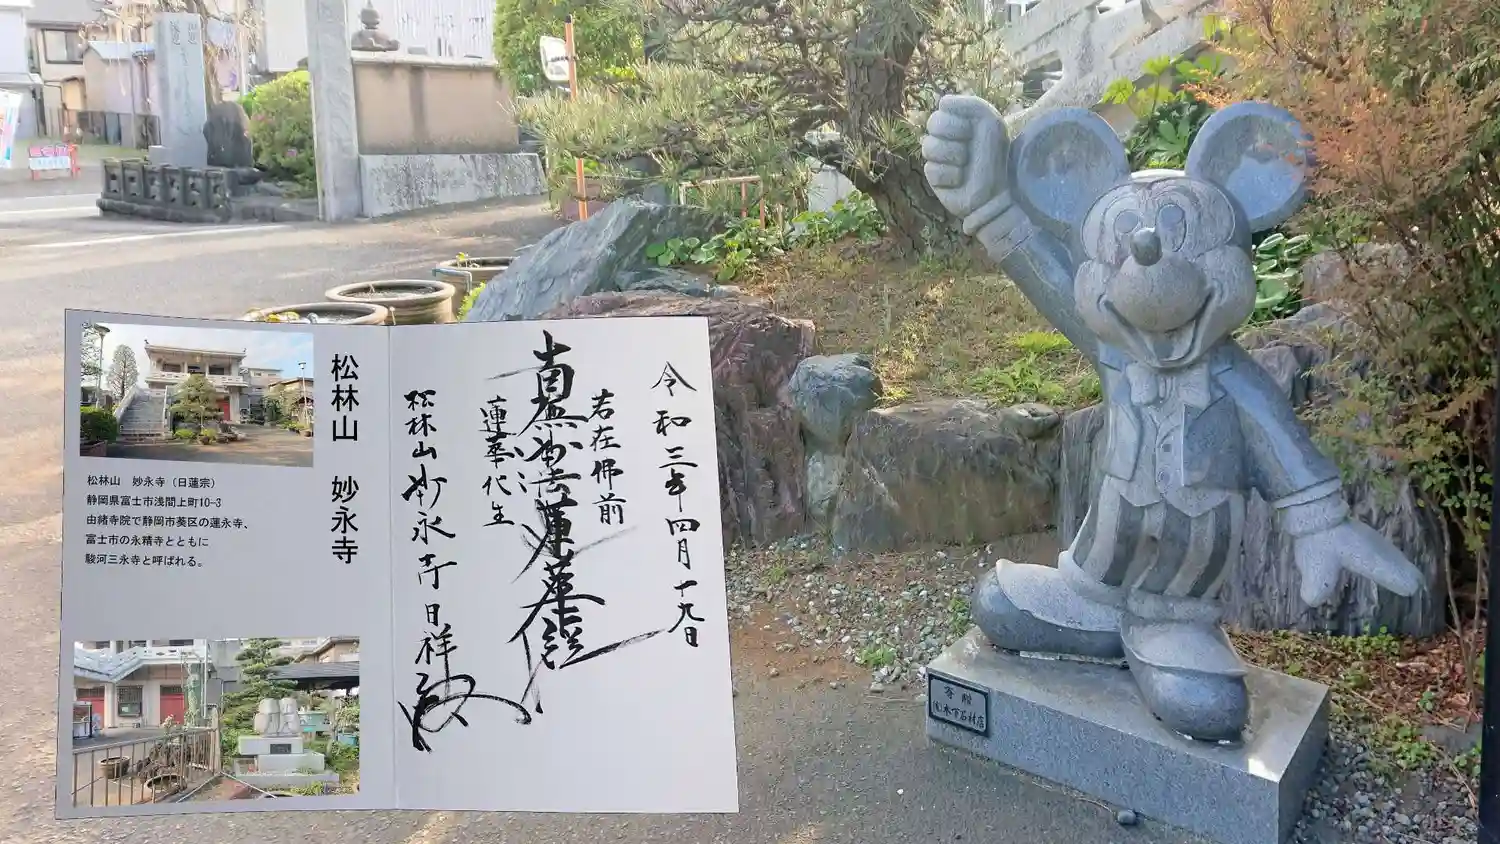 松林山　妙永寺
松林山　妙永寺（日蓮宗）
静岡県富士市浅間上町10-3
由緒寺院で静岡市葵区の蓮永寺、
富士市の永精寺とともに
駿河三永寺と呼ばれる。
令和三年四月十九日
若在佛前
南無妙法蓮華経
蓮華化生
松林山妙永寺日祥
寄贈
㈲木下石材店